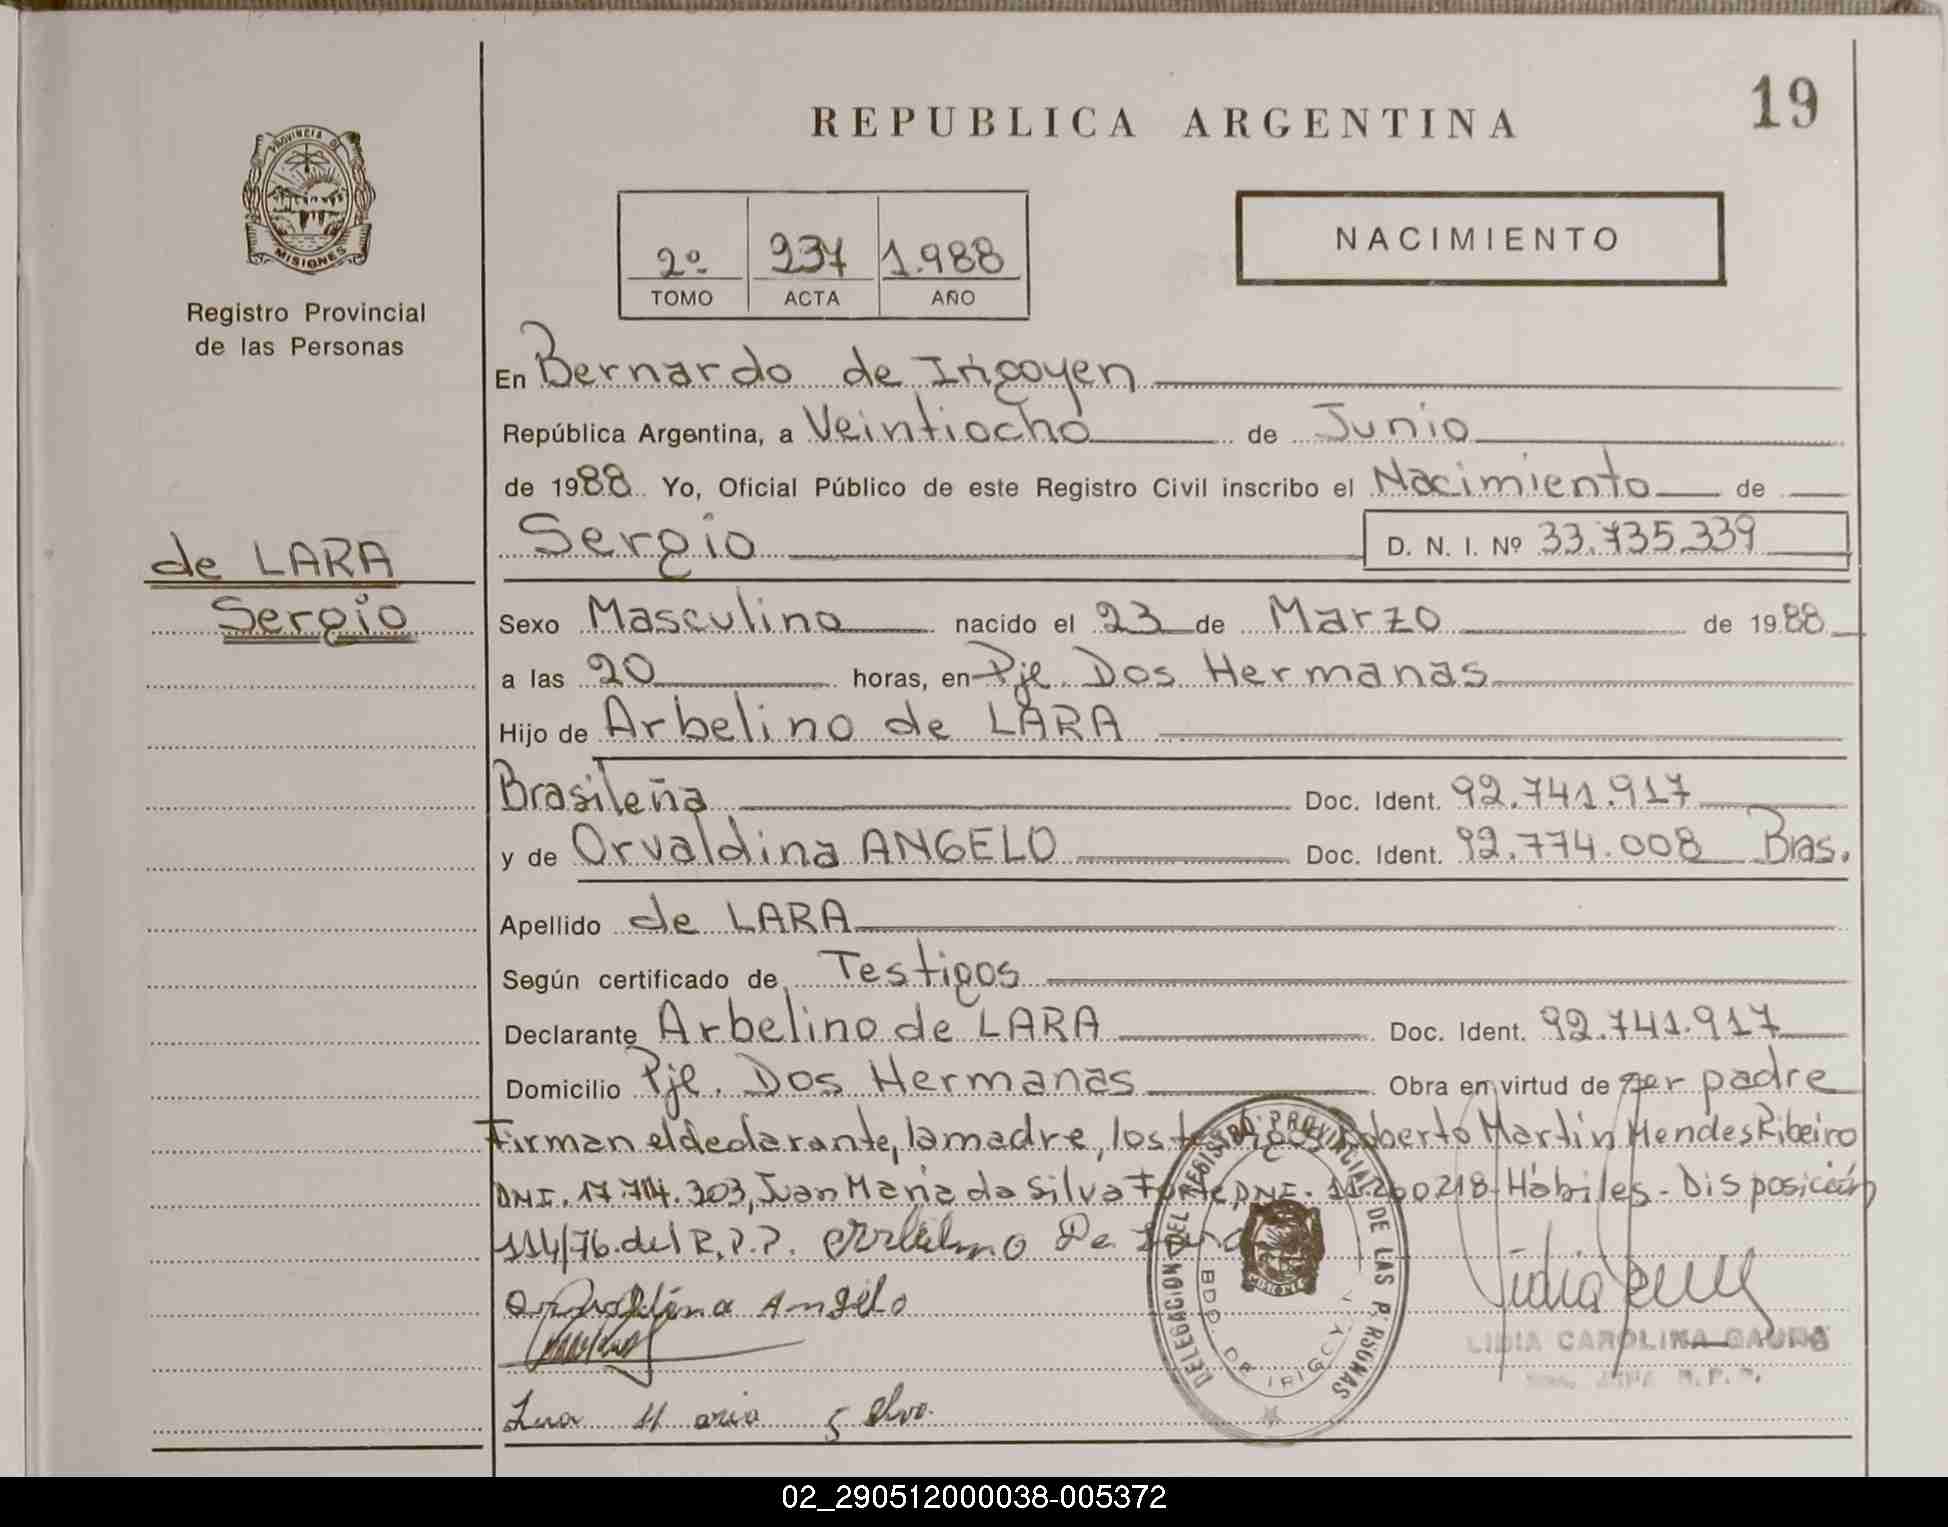 19
REPUBLICA ARGENTINA
PROVINCIA DE
MISIONES
Registro Provincial
de las Personas
2º 237 1.988
TOMO ACTA AÑO
NACIMIENTO
En Bernardo de Irigoyen
República Argentina, a Veintiocho de Junio
de 1988 Yo, Oficial Público de este Registro Civil inscribo el Nacimiento de
Sergio D. N. I. Nº 33.735.339
de LARA
Sergio
Sexo Masculino nacido el 23 de Marzo de 1988
a las 20 horas, en Pje. Dos Hermanas
Hijo de Arbelino de LARA
Brasileña Doc. Ident. 92.741.917
y de Orvaldina ANGELO Doc. Ident. 92.774.008 Bras.
Apellido de LARA
Según certificado de Testigos
Declarante Arbelino de LARA Doc. Ident. 92.741.917
Domicilio Pje. Dos Hermanas Obra en virtud de ser padre
Firman el declarante, la madre, los testigos Roberto Martin Mendes Ribeiro
DNI. 303, Juan Maria da Silva DNI. Hábiles - Disposición
114/76 del R.P.P. De Lara
Angelo
DELEGACION DEL REGISTRO PROVINCIAL DE LAS PERSONAS
BDO. DE IRIGOYEN
MISIONES
LIDIA CAROLINA
R.P.P.
02_290512000038-005372